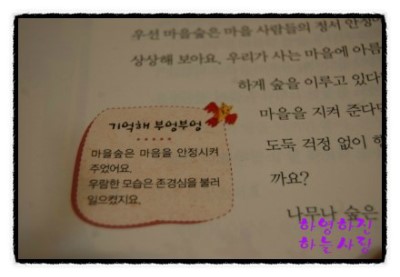 우선 마을숲은 마을 사람들의 정서 안정에
상상해 보아요. 우리가 사는 마을에 아름
하게 숲을 이루고 있다
마을을 지켜 준다
도둑 걱정 없이 행
까요?
나무나 숲은
기억해 부엉부엉
마을숲은 마음을 안정시켜
주었어요.
우람한 모습은 존경심을 불러
일으켰지요.
하영하진
하늘사림